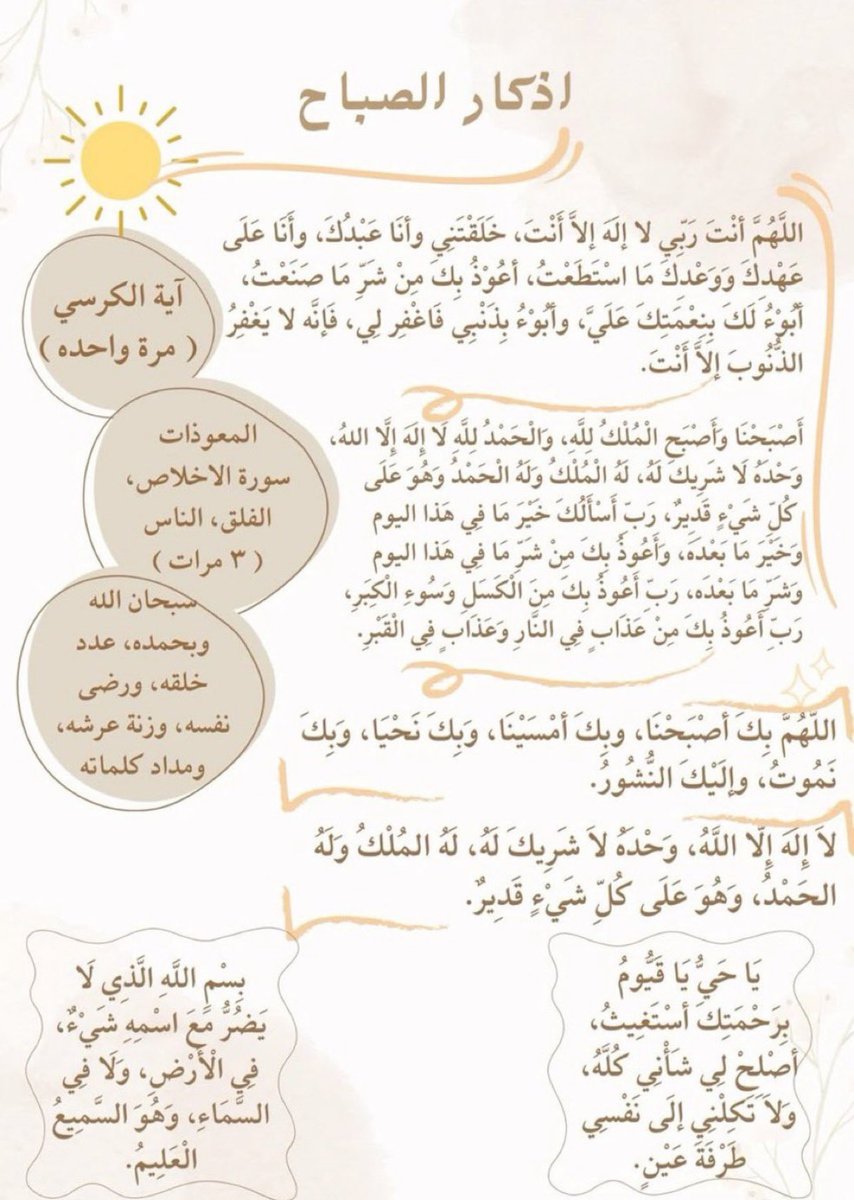 اذكار الصباح
اللَّهُمَّ أنْتَ رَبِّي لا إلَهَ إلاَّ أَنْتَ، خَلَقْتَنِي وأنَا عَبْدُكَ، وأَنَا عَلَى
عَهْدِكَ وَوَعْدِكَ مَا اسْتَطَعْتُ، أعُوْذُ بِكَ مِنْ شَرِّ مَا صَنَعْتُ،
أَبُوْءُ لَكَ بِنِعْمَتِكَ عَلَيَّ، وأَبُوْءُ بِذَنْبِي فَاغْفِر لِي، فَإنَّه لا يَغْفِرُ
الذُّنُوبَ إلاَّ أَنْتَ.
آية الكرسي
( مرة واحده )
أَصْبَحْنَا وَأَصْبَح الْمُلْكُ لِلَّهِ، وَالْحَمْدُ لِلَّهِ لَا إِلَه إِلَّا اللهُ،
وَحْدَهُ لَا شَرِيكَ لَهُ، لَهُ الْمُلْكُ وَلَهُ الْحَمْدُ وَهُوَ عَلَى
كُلِّ شَيْءٍ قَدِيرٌ، رَبِّ أَسْأَلُكَ خَيْرَ مَا فِي هَذا اليوم
وَخَيْرَ مَا بَعْدَهُ، وَأَعُوذُ بِكَ مِنْ شَرِّ مَا فِي هَذا اليوم
وَشَرِّ مَا بَعْدَه، رَبِّ أَعُوذُ بِكَ مِنَ الْكَسَلِ وَسُوءِ الْكِبَرِ،
رَبِّ أَعُوذُ بِكَ مِنْ عَذَابٍ فِي النَّارِ وَعَذَابٍ فِي الْقَبْرِ.
المعوذات
سورة الاخلاص،
الفلق، الناس
( ٣ مرات )
سبحان الله
وبحمده، عدد
خلقه، ورضى
نفسه، وزنة عرشه،
ومداد كلماته
اللّهُمَّ بِكَ أصْبَحْنَا، وبِكَ أمْسَيْنَا، وَبِكَ نَحْيَا، وَبِكَ
نَمُوتُ، وإلَيْكَ النُّشُورُ.
لاَ إِلَهَ إِلّا اللَّهُ، وَحْدَهُ لاَ شَرِيكَ لَهُ، لَهُ المُلْكُ وَلَهُ
الحَمْدُ، وَهُوَ عَلَى كُلِّ شَيْءٍ قَدِيرٌ.
يَا حَيُّ يَا قَيُّومُ
بِرَحْمَتِكَ أسْتَغِيثُ،
أصْلِحْ لِي شَأْنِي كُلَّهُ،
وَلاَ تَكِلْنِي إلَى نَفْسِي
طَرْفَةَ عَيْنٍ.
بِسْمِ اللَّهِ الَّذِي لَا
يَضُرُّ مَعَ اسْمِهِ شَيْءٌ،
فِي الْأَرْضِ، وَلَا فِي
السَّمَاءِ، وَهُوَ السَّمِيعُ
الْعَلِيمُ.